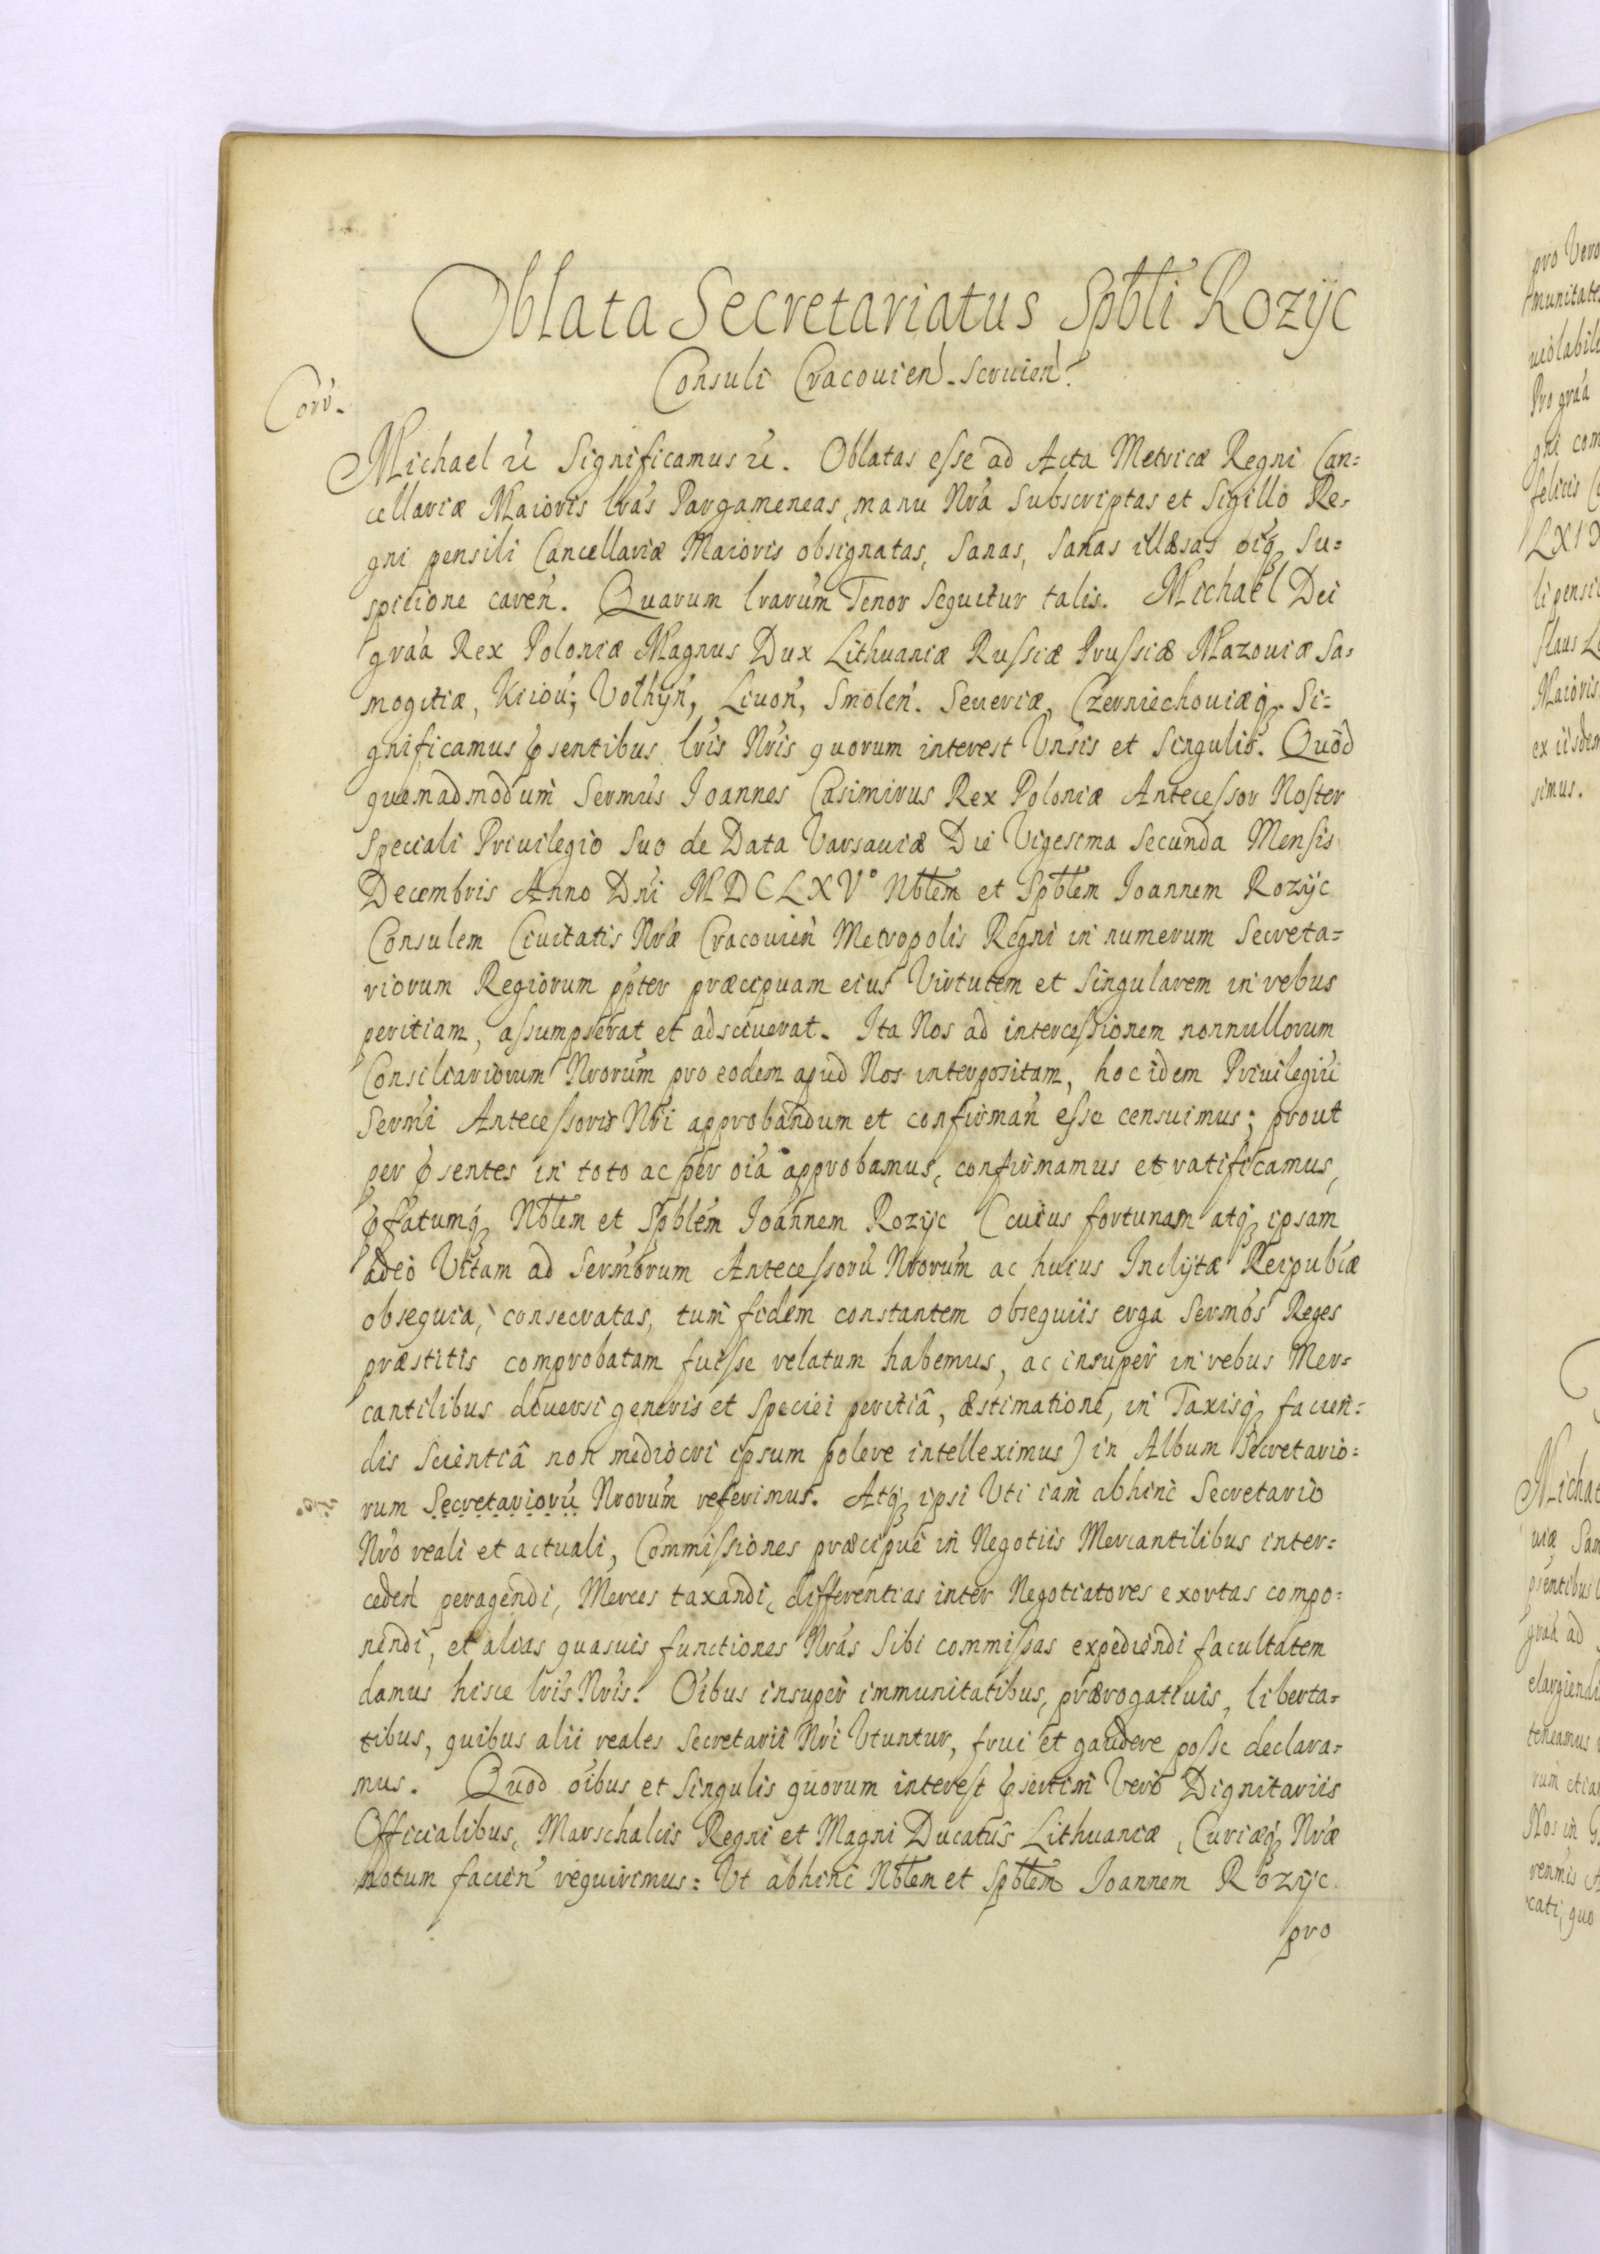 Oblata Secretariatus Spbli Rozÿc
Consuli Cracouien. Seruien.
Corr.
Michael etc Significamus etc. Oblatas esse ad Acta Metricæ Regni Can=
cellariæ Maioris lras Pargameneas, manu Nra Subscriptas et Sigillo Re-
gni pensili Cancellariæ Maioris obsignatas, Sanas, Sanas illæsas oiq, Su=
spicione caren. Quarum lrarum Tenor Sequitur talis. Michael Dei
graa Rex Poloniæ Magnus Dux Lithuaniæ Russiæ Prussiæ Mazouiæ Sa-
mogitiæ, Kiiou; Volhÿn, Liuon, Smolen. Seueriæ, Czerniechouiæq. Si=
gnificamus psentibus lris Nris quorum interest Vnsis et Singulis. Quod
quemadmodum Sermus Ioannes Casimirus Rex Poloniæ Antecessor Noster
Speciali Priuilegio Suo de Data Varsauiæ Die Vigesima Secunda Mensis
Decembris Anno Dni MDCLXV° Nblem et Spblem Ioannem Rozÿc
Consulem Ciuitatis Nræ Cracouien Metropolis Regni in numerum Secreta=
riorum Regiorum ppter præcipuam eius Virtutem et Singularem in rebus
peritiam, assumpserat et adsciuerat. Ita Nos ad intercessionem nonnullorum
Consiliariorum Nrorum pro eodem apud Nos interpositam, hoc idem Priuilegiu
Sermi Antecessoris Nri approbandum et confirman esse censuimus; prout
per psentes in toto ac per oia approbamus, confirmamus et ratificamus,
pfatumq, Nblem et Spblem Ioannem Rozÿc (cuius fortunam atq, ipsam
adeo Vitam ad Sermorum Antecessoru Nrorum ac huius Inclÿtæ Reipubcæ
obsequia, consecratas, tum fidem constantem obsequiis erga Sermos Reges
præstitis comprobatam fuisse relatum habemus, ac insuper in rebus Mer-
cantilibus diuersi generis et Speciei peritiâ, æstimatione, in Taxisq, facien=
dis Scientiâ non mediocri ipsum polere intelleximus) in Album Secretario=
rum Secretarioru Nrorum referimus. Atq, ipsi Vti iam abhinc Secretario
Nro reali et actuali, Commissiones præcipue in Negotiis Mercantilibus inter=
ceden peragendi, Merces taxandi, differentias inter Negotiatores exortas compo=
nendi, et alias quasuis functiones Nras Sibi commissas expediendi facultatem
damus hisce lris Nris. Oibus insuper immunitatibus, prærogatiuis, liberta-
tibus, quibus alii reales Secretarii Nri Vtuntur, frui et gaudere posse declara-
mus. Quod oibus et Singulis quorum interest psertim Vero Dignitariis
Officialibus, Marschalcis Regni et Magni Ducatus Lithuaniæ, Curiæq, Nræ
notum facien requirimus: Vt abhinc Nblem et Spblem Ioannem Rozÿc
pro